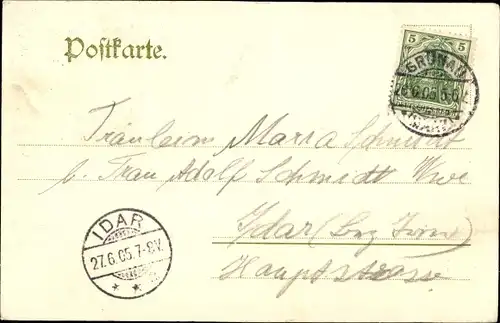 Postkarte.
5 5
GRÜNAU
26.6.05.5-6N.
(MARK)
Fräulein Maria Schmidt
b. Frau Adolf Schmidt Wwe
Idar (Bez Trier)
Hauptstrasse
IDAR
27.6.05.7-8V.
* *